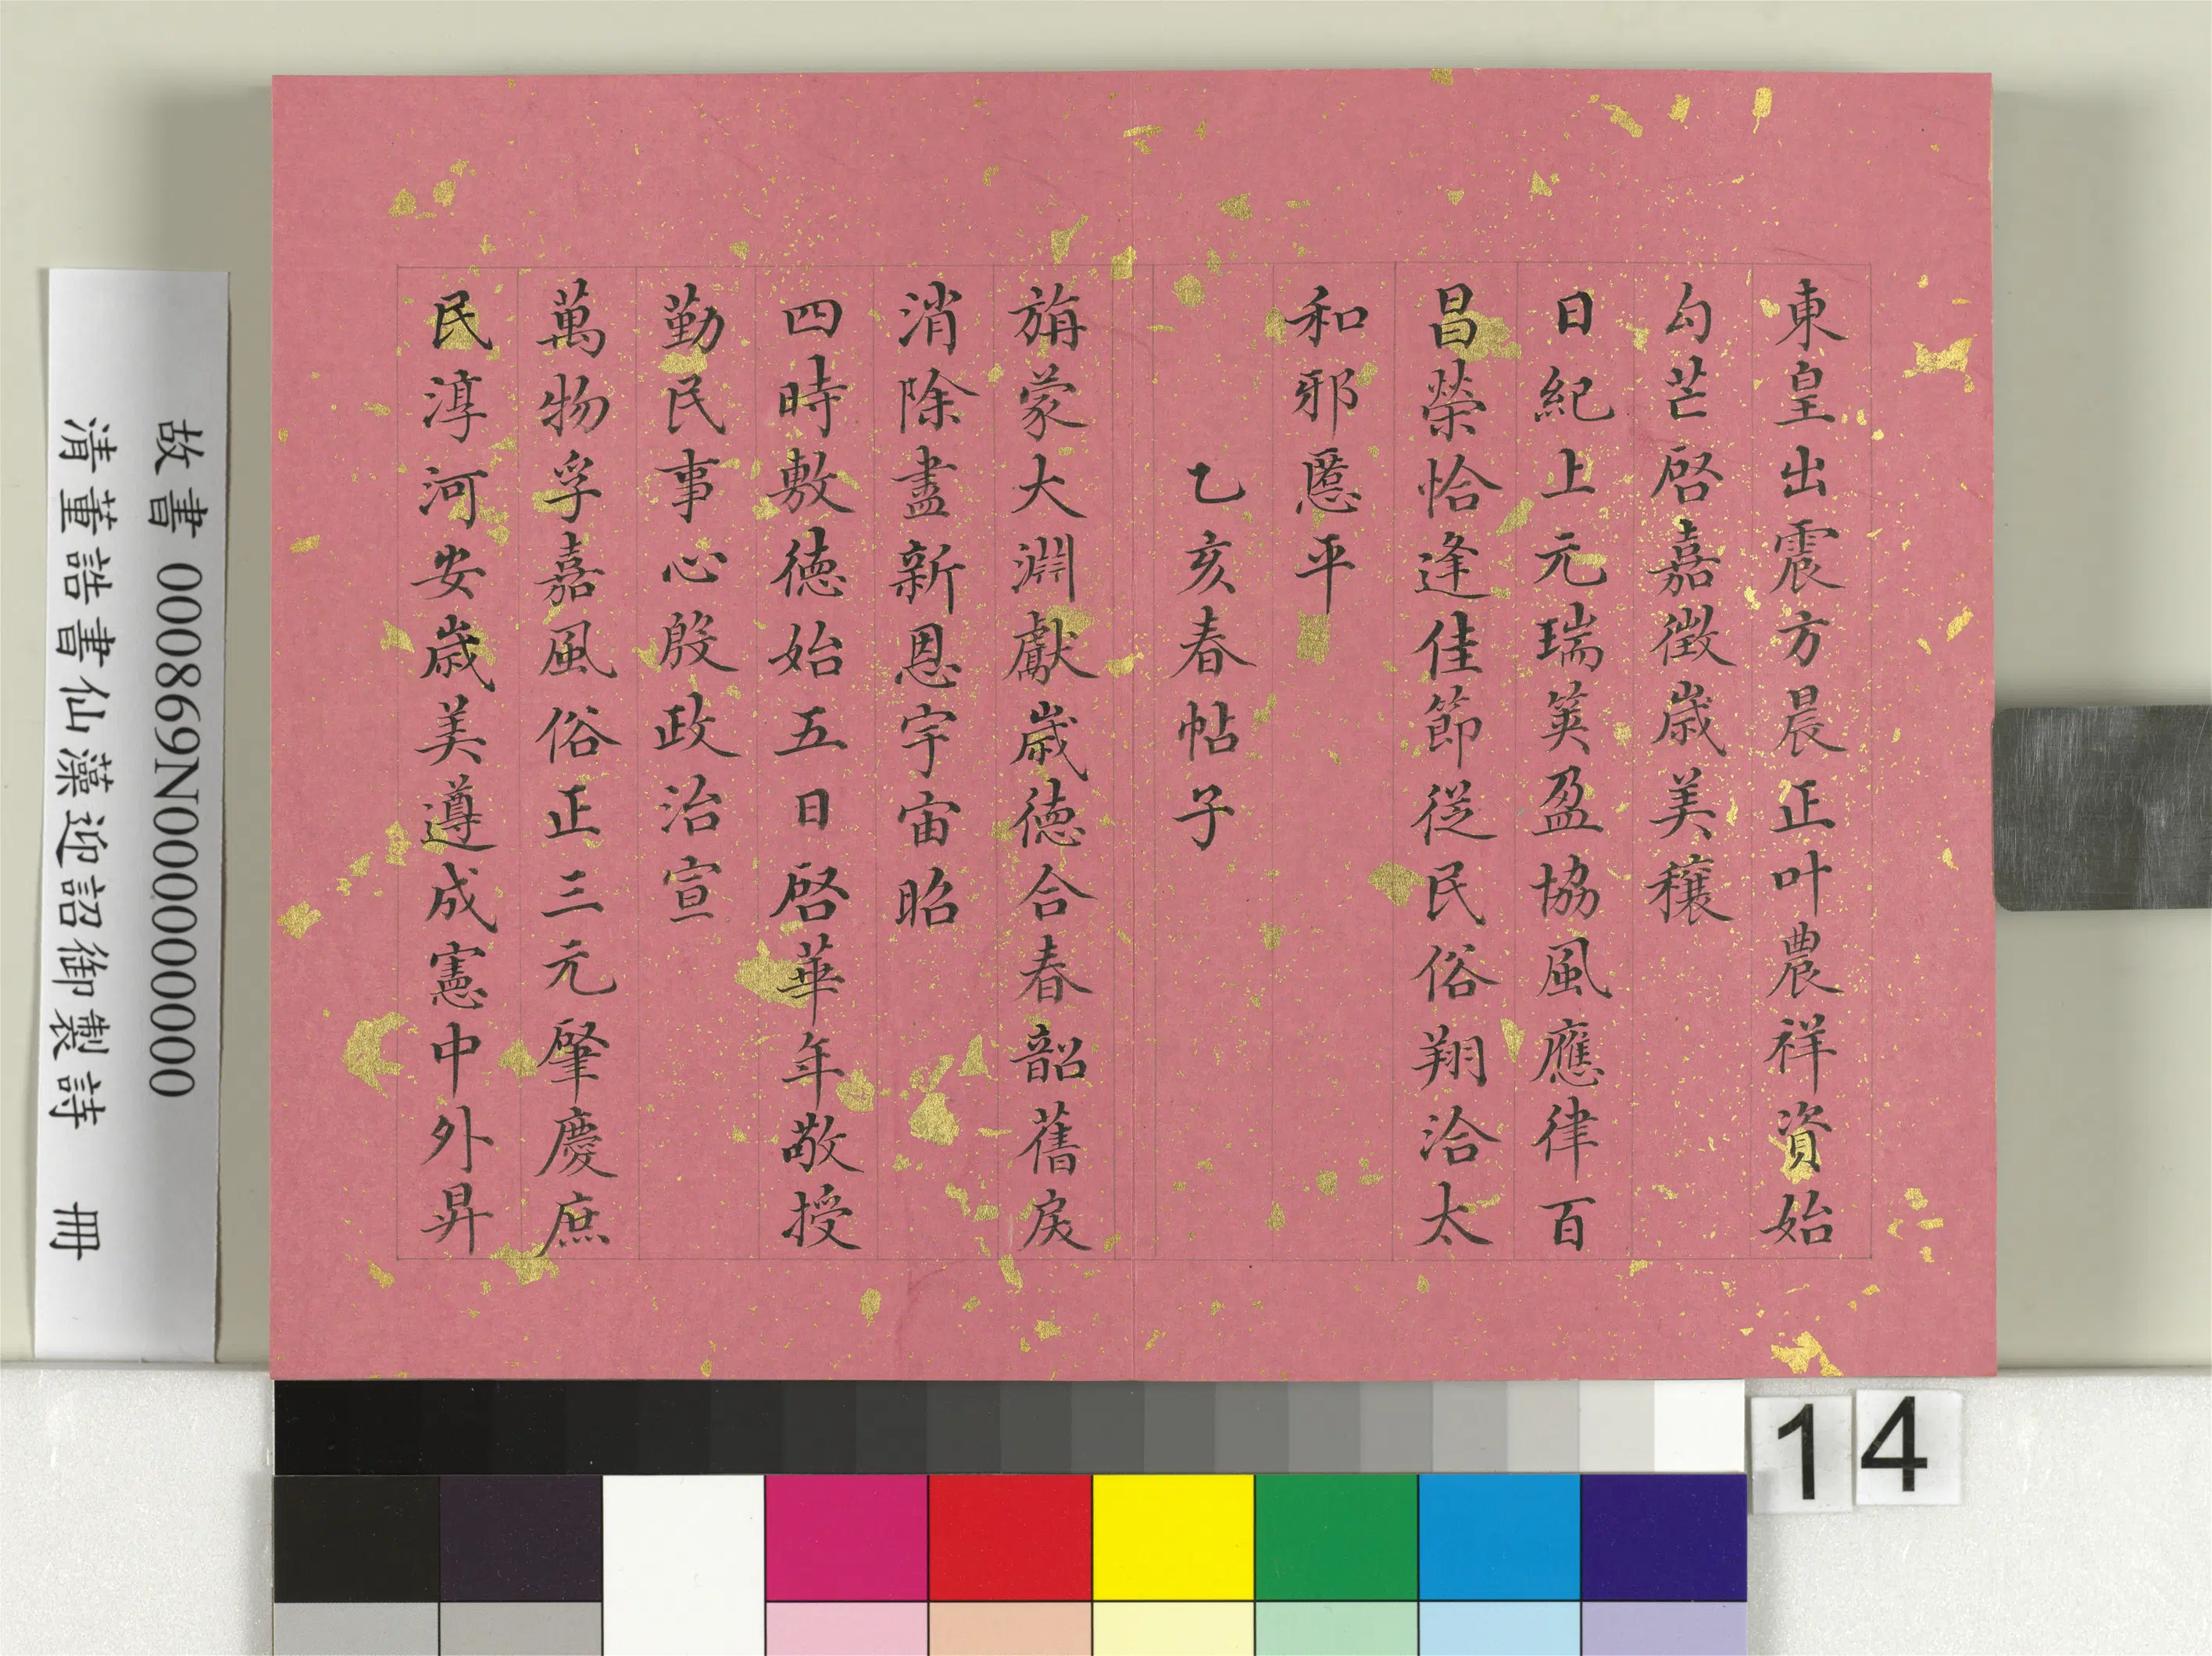 東皇出震方晨正叶農祥資始
勾芒啓嘉徵歲美穰
日紀上元瑞莢盈協風應律百
昌榮恰逢佳節從民俗翔洽太
和邪慝平
乙亥春帖子
旃蒙大淵獻歲德合春韶舊戾
消除盡新恩宇宙昭
四時敷德始五日啓華年敬授
勤民事心殷政治宣
萬物孚嘉風俗正三元肇慶庶
民淳河安歲美遵成憲中外昇
故書 000869N000000000
清董誥書仙藻迎韶御製詩 冊
14